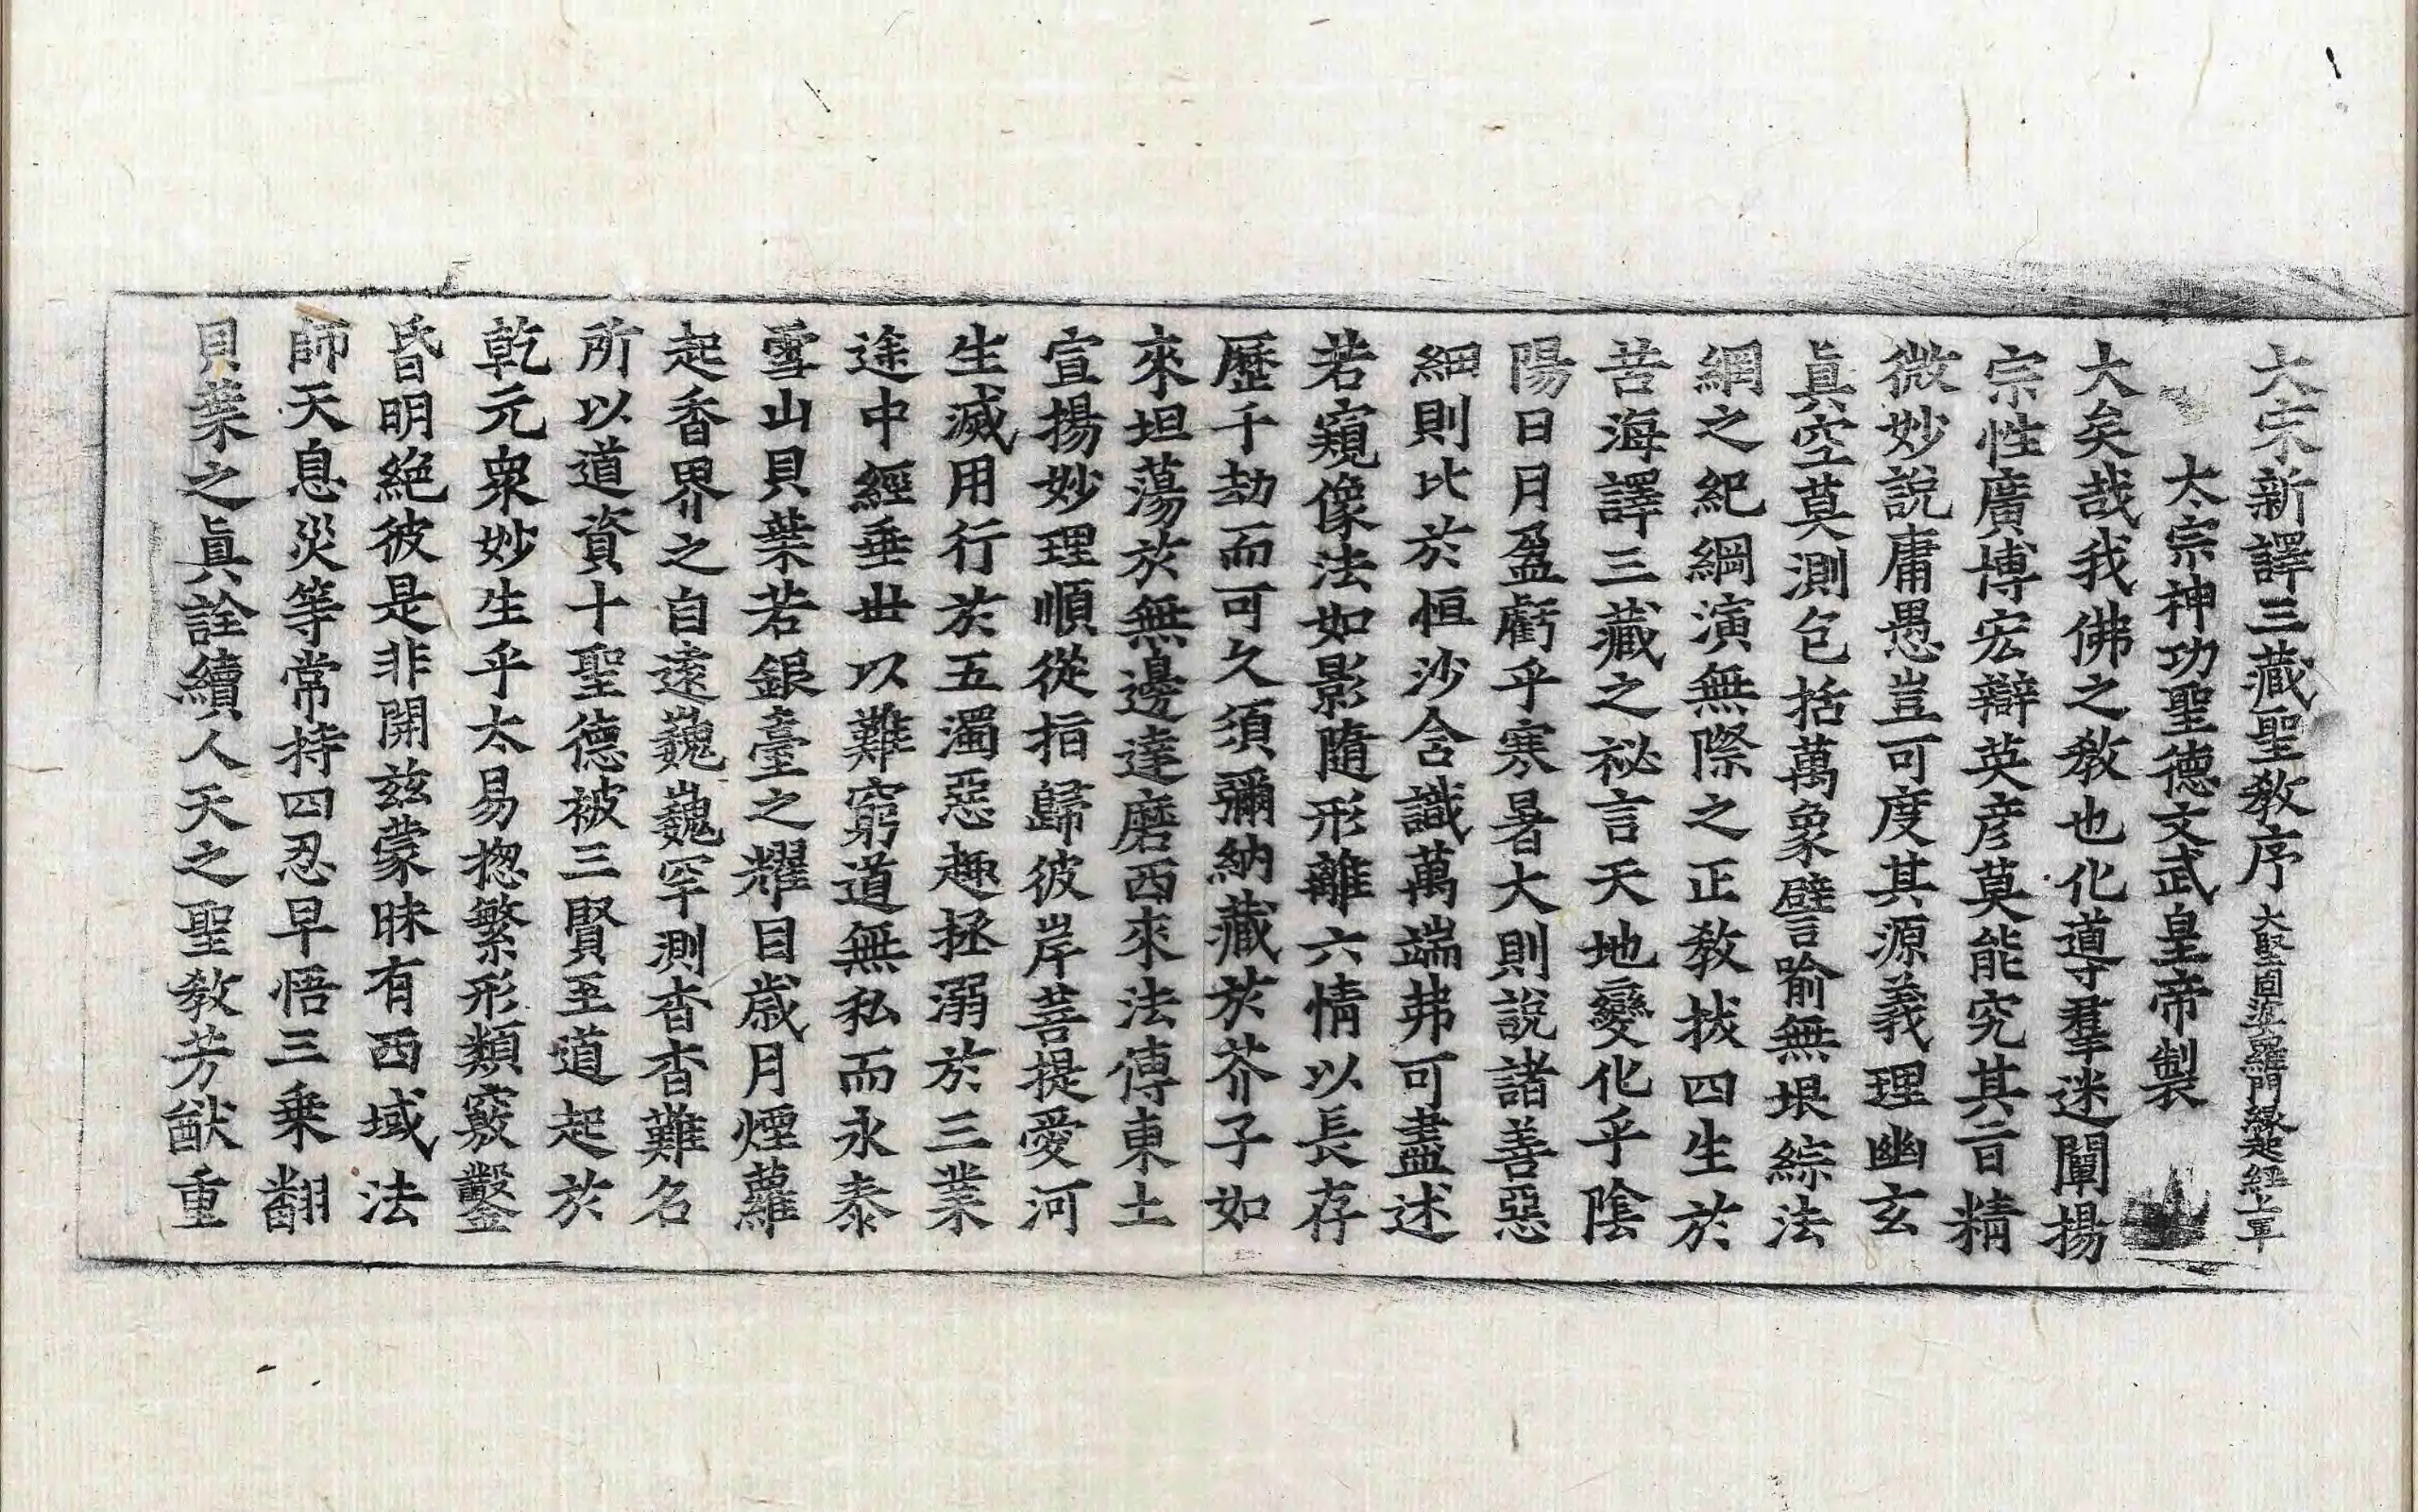 大宋新譯三藏聖教序 大堅固婆羅門縁起經上軍
太宗神功聖德文武皇帝製
大矣哉我佛之教也化導羣迷闡揚
宗性廣博宏辯英彦莫能究其旨精
微妙說庸愚豈可度其源義理幽玄
眞空莫測包括萬象譬喻無垠綜法
網之紀綱演無際之正教拔四生於
苦海譯三藏之祕言天地變化乎陰
陽日月盈虧乎寒暑大則說諸善惡
細則比於恒沙含識萬端弗可盡述
若窺像法如影隨形離六情以長存
歷千劫而可久須彌納藏於芥子如
來坦蕩於無邊達磨西來法傳東土
宣揚妙理順從指歸彼岸菩提愛河
生滅用行於五濁惡趣拯溺於三業
途中經垂世以難窮道無私而永泰
雪山貝葉若銀臺之耀目歲月煙蘿
起香界之自遠巍巍罕測杳杳難名
所以道資十聖德被三賢至道起於
乾元衆妙生乎太易揔繁形類竅鑿
昏明絶彼是非開茲蒙昧有西域法
師天息災等常持四忍早悟三乗翻
貝葉之眞詮續人天之聖教芳猷重